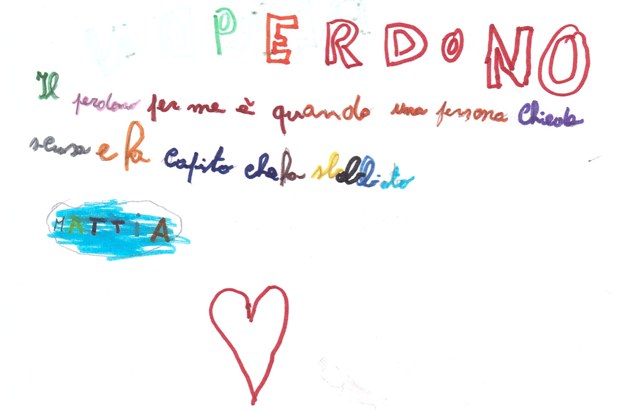 PERDONO
Il perdono per me è quando una persona chiede
scusa e ha capito che ha sbagliato
MATTIA